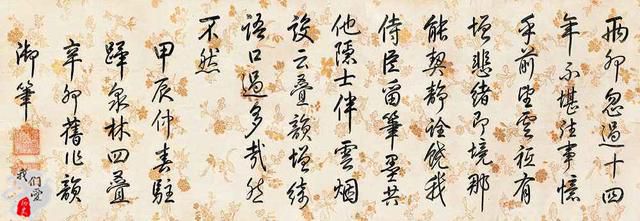 兩卯忽過十四
年不堪往事憶
乎前望雲祗有
增悲緒即境那
能契靜詮饒我
侍臣留筆墨共
他隱士伴雲烟
設云疊韻增綺
語口過多哉然
不然
甲辰仲春駐
蹕泉林四疊
辛卯舊作韻
御筆
我们爱
历史